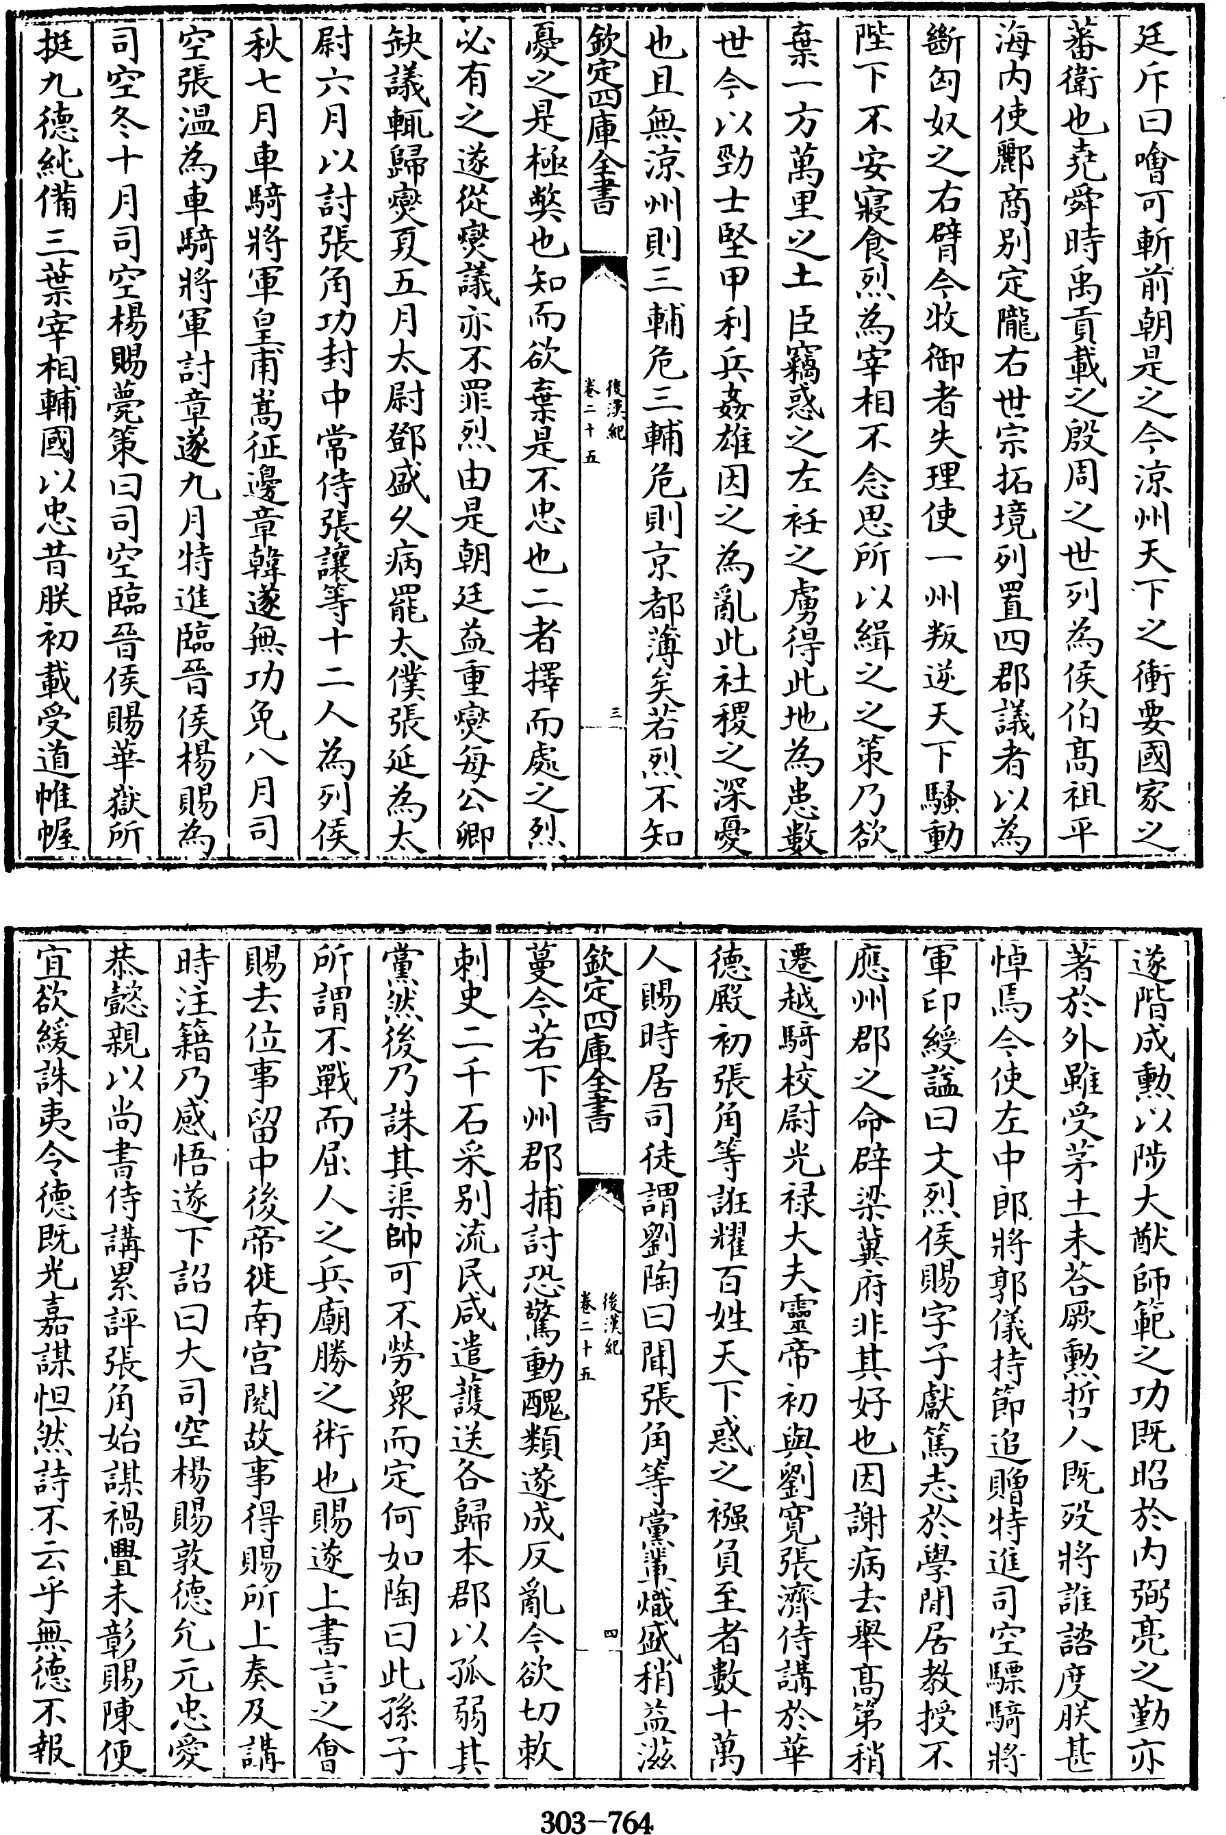 廷斥曰噲可斬前朝是之今涼州天下之衝要國家之
蕃衛也堯舜時禹貢載之殷周之世列為侯伯髙祖平
海内使酈商别定隴右世宗拓境列置四郡議者以為
斷匈奴之右臂今牧御者失理使一州叛逆天下騷動
陛下不安寢食烈為宰相不念思所以緝之之策乃欲
棄一方萬里之土臣竊惑之左衽之虜得此地為患數
世今以勁士堅甲利兵姦雄因之為亂此社稷之深憂
也且無涼州則三輔危三輔危則京都薄矣若烈不知
欽定四庫全書
後漢紀
卷二十五
三
憂之是極弊也知而欲棄是不忠也二者擇而處之烈
必有之遂從燮議亦不罪烈由是朝廷益重燮每公卿
缺議輒歸燮夏五月太尉鄧盛久病罷太僕張延為太
尉六月以討張角功封中常侍張讓等十二人為列侯
秋七月車騎將軍皇甫嵩征邊章韓遂無功免八月司
空張温為車騎將軍討章遂九月特進臨晉侯楊賜為
司空冬十月司空楊賜薨策曰司空臨晉侯賜華嶽所
挺九德純備三葉宰相輔國以忠昔朕初載受道帷幄
遂階成勲以陟大猷師範之功既昭於内弼亮之勤亦
著於外雖受茅土未荅厥勲哲人既殁將誰諮度朕甚
悼焉今使左中郎將郭儀持節追贈特進司空驃騎將
軍印綬諡曰文烈侯賜字子獻篤志於學閒居教授不
應州郡之命辟梁冀府非其好也因謝病去舉髙第稍
遷越騎校尉光禄大夫靈帝初與劉寛張濟侍講於華
德殿初張角等誑耀百姓天下惑之襁負至者數十萬
人賜時居司徒謂劉陶曰聞張角等黨軰熾盛稍益滋
欽定四庫全書
後漢紀
卷二十五
四
蔓今若下州郡捕討恐驚動醜類遂成反亂今欲切敕
刺史二千石采别流民咸遣護送各歸本郡以孤弱其
黨然後乃誅其渠帥可不勞衆而定何如陶曰此孫子
所謂不戰而屈人之兵廟勝之術也賜遂上書言之會
賜去位事留中後帝徙南宫閱故事得賜所上奏及講
時注籍乃感悟遂下詔曰大司空楊賜敦德允元忠愛
恭懿親以尚書侍講累評張角始謀禍舋未彰賜陳便
宜欲緩誅夷令德既光嘉謀怛然詩不云乎無德不報
303-764